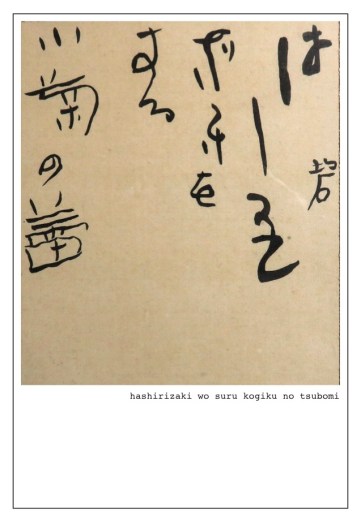 はしり
ざきを
する
小菊の蕾
hashirizaki wo suru kogiku no tsubomi